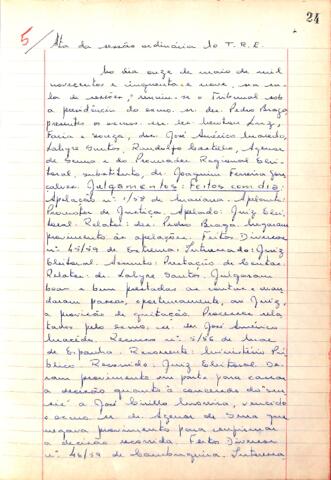 24
5
Ata da sessão ordinária do T. R. E.
No dia onze de maio de mil
novecentos e cinquenta e nove, na sa-
la de sessões, reuniu-se o Tribunal sob
a presidência do exmo. sr. des. Pedro Braga,
presentes os exmos. srs. des. Newton Luz,
Faria e Souza, drs. José Américo Macedo,
Lahyre Santos, Randolfo Castello, Agenor
de Senna e do Procurador Regional Elei-
toral, substituto, dr. Joaquim Ferreira Gon-
çalves. Julgamentos: Feitos com dia:
Apelação n.º 1/58 de Mariana. Apelante:
Promotor de Justiça. Apelado: Juiz Elei-
toral. Relator: des. Pedro Braga. Negaram
provimento às apelações. Feitos Diversos
n.º 45/59 de Extrema. Interessado: Juiz
Eleitoral. Assunto: Prestação de Contas.
Relator: dr. Lahyre Santos. Julgaram
boas e bem prestadas as contas e man-
daram passar, oportunamente, ao Juiz,
a provisão de quitação. Processos rela-
tados pelo exmo. sr. dr. José Américo
Macedo. Recurso n.º 5/56 de Mar
de Espanha. Recorrente: Ministério Pú-
blico. Recorrido: Juiz Eleitoral. De-
ram provimento em parte para cassar
a decisão quanto à concessão do "sur-
sis" a José Cirillo Moreira, vencido
o exmo. sr. dr. Agenor de Senna que
negava provimento para confirmar
a decisão recorrida. Feitos Diversos
n.º 46/59 de Cambuquira. Interessa